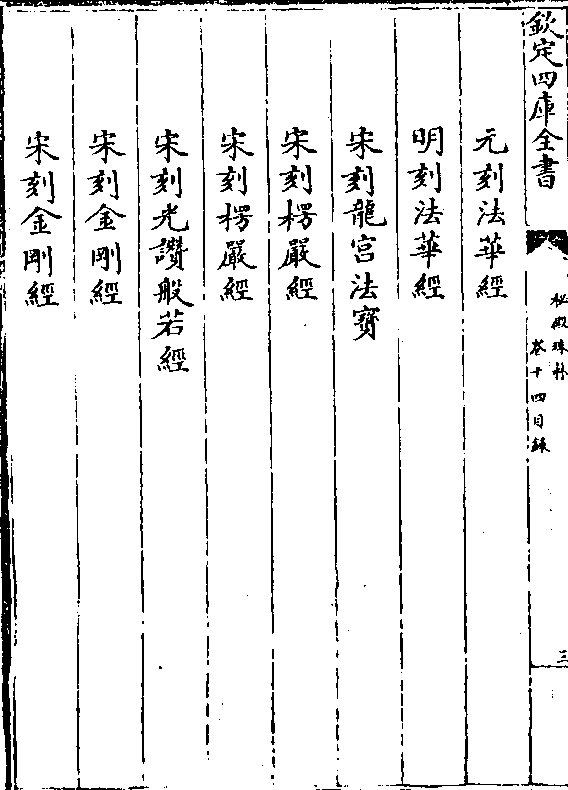 欽定四庫全書
秘殿珠林
卷十四目錄
三
元刻法華經
明刻法華經
宋刻龍宮法寶
宋刻楞嚴經
宋刻楞嚴經
宋刻光讚般若經
宋刻金剛經
宋刻金剛經